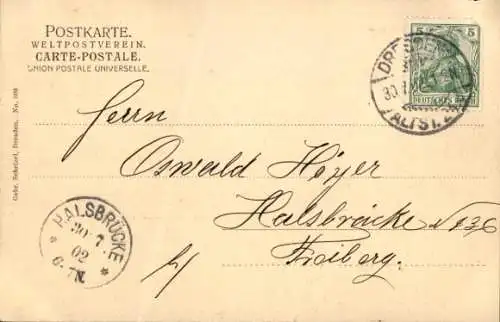 POSTKARTE.
WELTPOSTVEREIN.
CARTE-POSTALE.
UNION POSTALE UNIVERSELLE.
5 5
DRESDEN
30.7.
DEUTSCHES REICH
ALTST.
Herrn
Oswald Höyer
Halsbrücke No 136
Freiberg.
HALSBRÜCKE
30 7
02
6-7N.
Dresden. No.